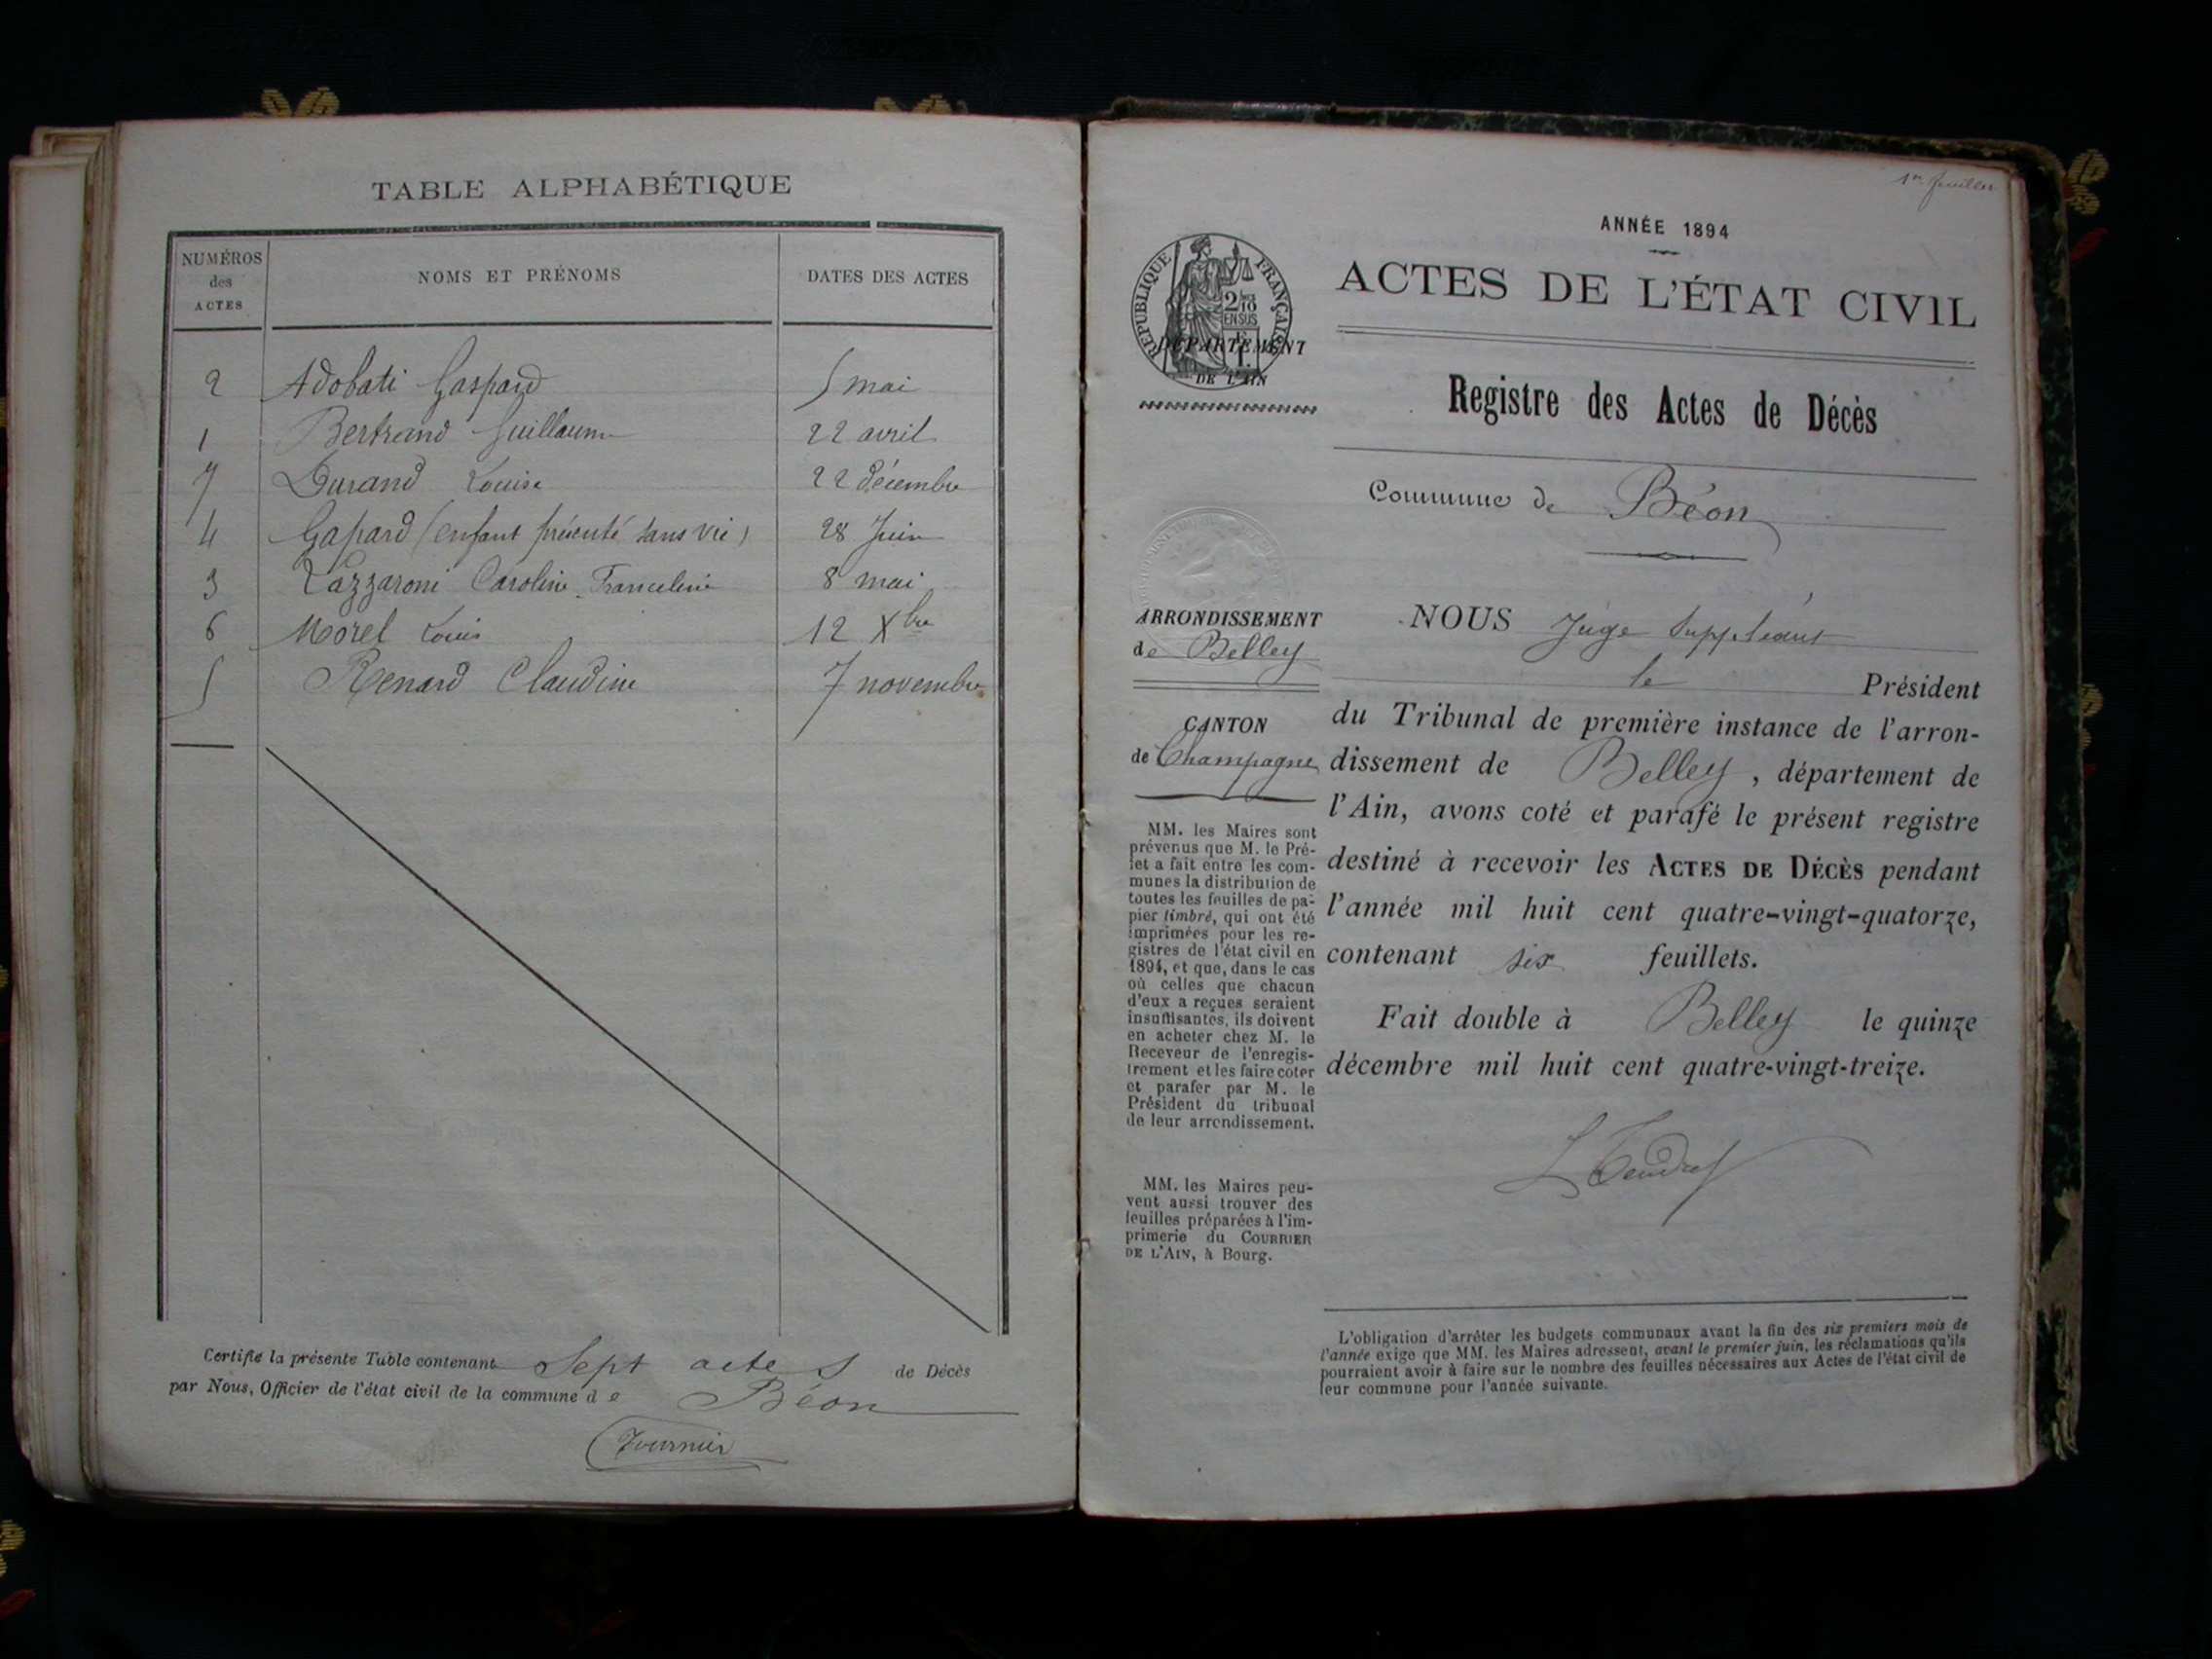 TABLE ALPHABÉTIQUE
NUMÉROS
des
ACTES
NOMS ET PRÉNOMS
DATES DES ACTES
2 Adobati Gaspard 5 mai
1 Bertrand Guillaume 22 avril
7 Durand Louise 22 décembre
4 Gapard (enfant présenté sans vie) 28 Juin
3 Lazzaroni Caroline Franceline 8 mai
6 Morel Louis 12 Xbre
5 Renard Claudine 7 novembre
Certifié la présente Table contenant Sept actes de Décès
par Nous, Officier de l'état civil de la commune de Béon
Fournier
1er feuillet
ANNÉE 1894
ACTES DE L'ÉTAT CIVIL
Registre des Actes de Décès
Commune de Béon
RÉPUBLIQUE FRANÇAISE
2/10
EN SUS
DÉPARTEMENT
DE L'AIN
ARRONDISSEMENT
de Belley
CANTON
de Champagne
MM. les Maires sont
prévenus que M. le Pré-
fet a fait entre les com-
munes la distribution de
toutes les feuilles de pa-
pier timbré, qui ont été
imprimées pour les re-
gistres de l'état civil en
1894, et que, dans le cas
où celles que chacun
d'eux a reçues seraient
insuffisantes, ils doivent
en acheter chez M. le
Receveur de l'enregis-
trement et les faire coter
et parafer par M. le
Président du tribunal
de leur arrondissement.
MM. les Maires peu-
vent aussi trouver des
feuilles préparées à l'im-
primerie du COURRIER
DE L'AIN, à Bourg.
NOUS Juge Suppléant
le Président
du Tribunal de première instance de l'arron-
dissement de Belley, département de
l'Ain, avons coté et parafé le présent registre
destiné à recevoir les ACTES DE DÉCÈS pendant
l'année mil huit cent quatre-vingt-quatorze,
contenant six feuillets.
Fait double à Belley le quinze
décembre mil huit cent quatre-vingt-treize.
L'obligation d'arrêter les budgets communaux avant la fin des six premiers mois de
l'année exige que MM. les Maires adressent, avant le premier juin, les réclamations qu'ils
pourraient avoir à faire sur le nombre des feuilles nécessaires aux Actes de l'état civil de
leur commune pour l'année suivante.